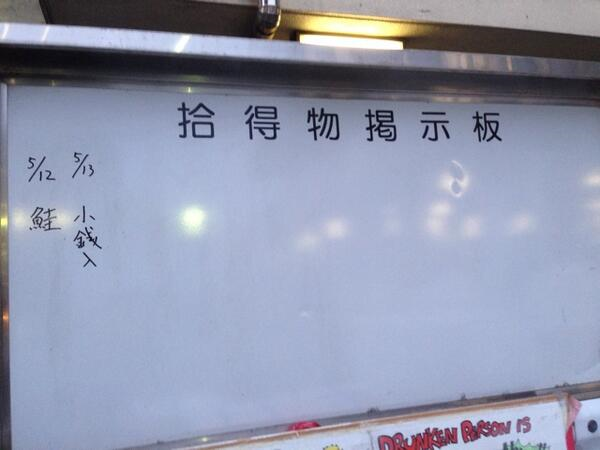 拾得物掲示板
5/13
小銭入
5/12
鮭
DRUNKEN PERSON IS